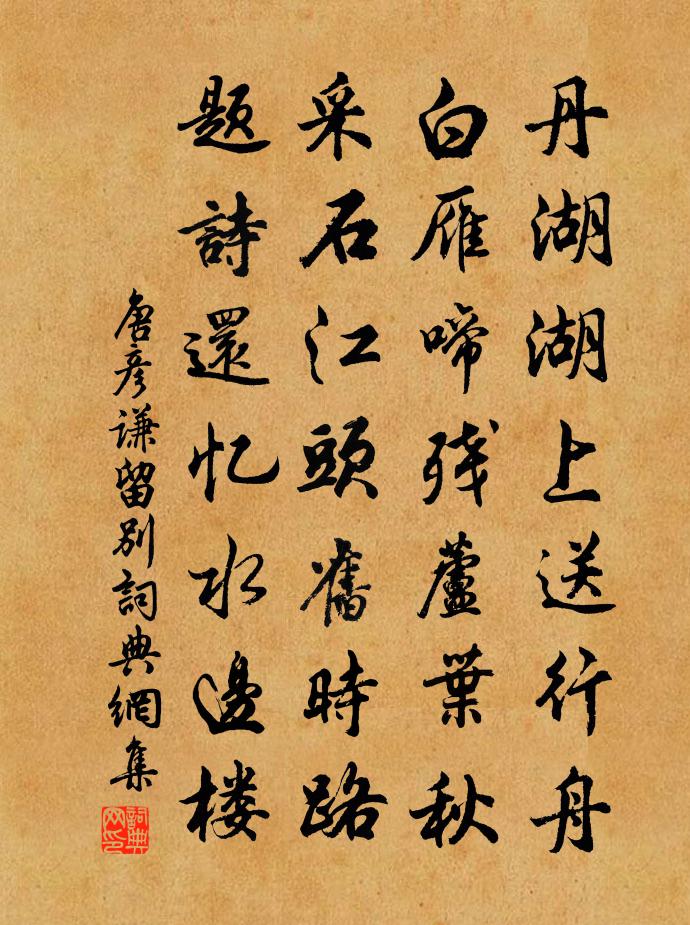 丹湖湖上送行舟
白雁啼残蘆葉秋
采石江頭舊時路
題詩還忆水邊楼
唐彦谦留别詞典網集
詞典网印